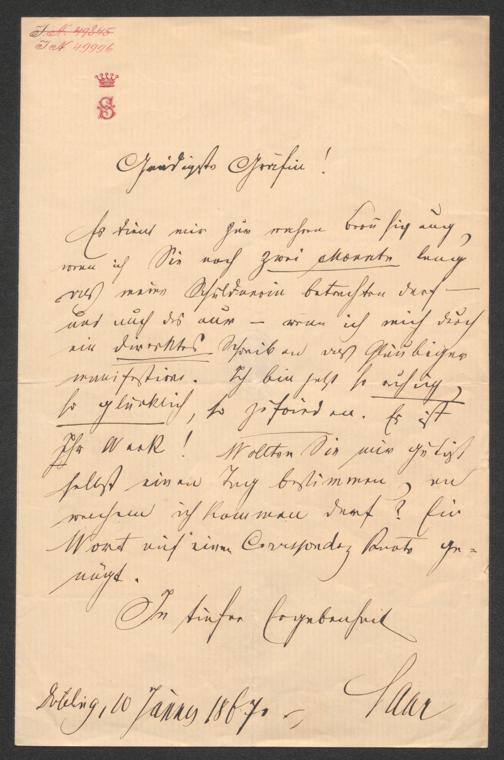 I. N. 49845
I N 49996
S
Gnädigste Gräfin!
Es dient mir zur wahren Beruhigung,
wenn ich Sie noch zwei Monate lang
als meine Schuldnerin betrachten darf —
und auch das nur — wenn ich mich durch
ein direktes Schreiben als Gläubiger
manifestire. Ich bin jetzt so ruhig,
so glücklich, so zufrieden. Es ist
Ihr Werk! Wollten Sie mir gütigst
selbst einen Tag bestimmen, an
welchem ich kommen darf? Ein
Wort auf einer Correspondez Karte ge=
nügt.
In tiefer Ergebenheit
Döbling, 10 Jänner 187
Saar